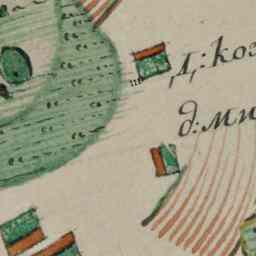 Д:коз
д:ми